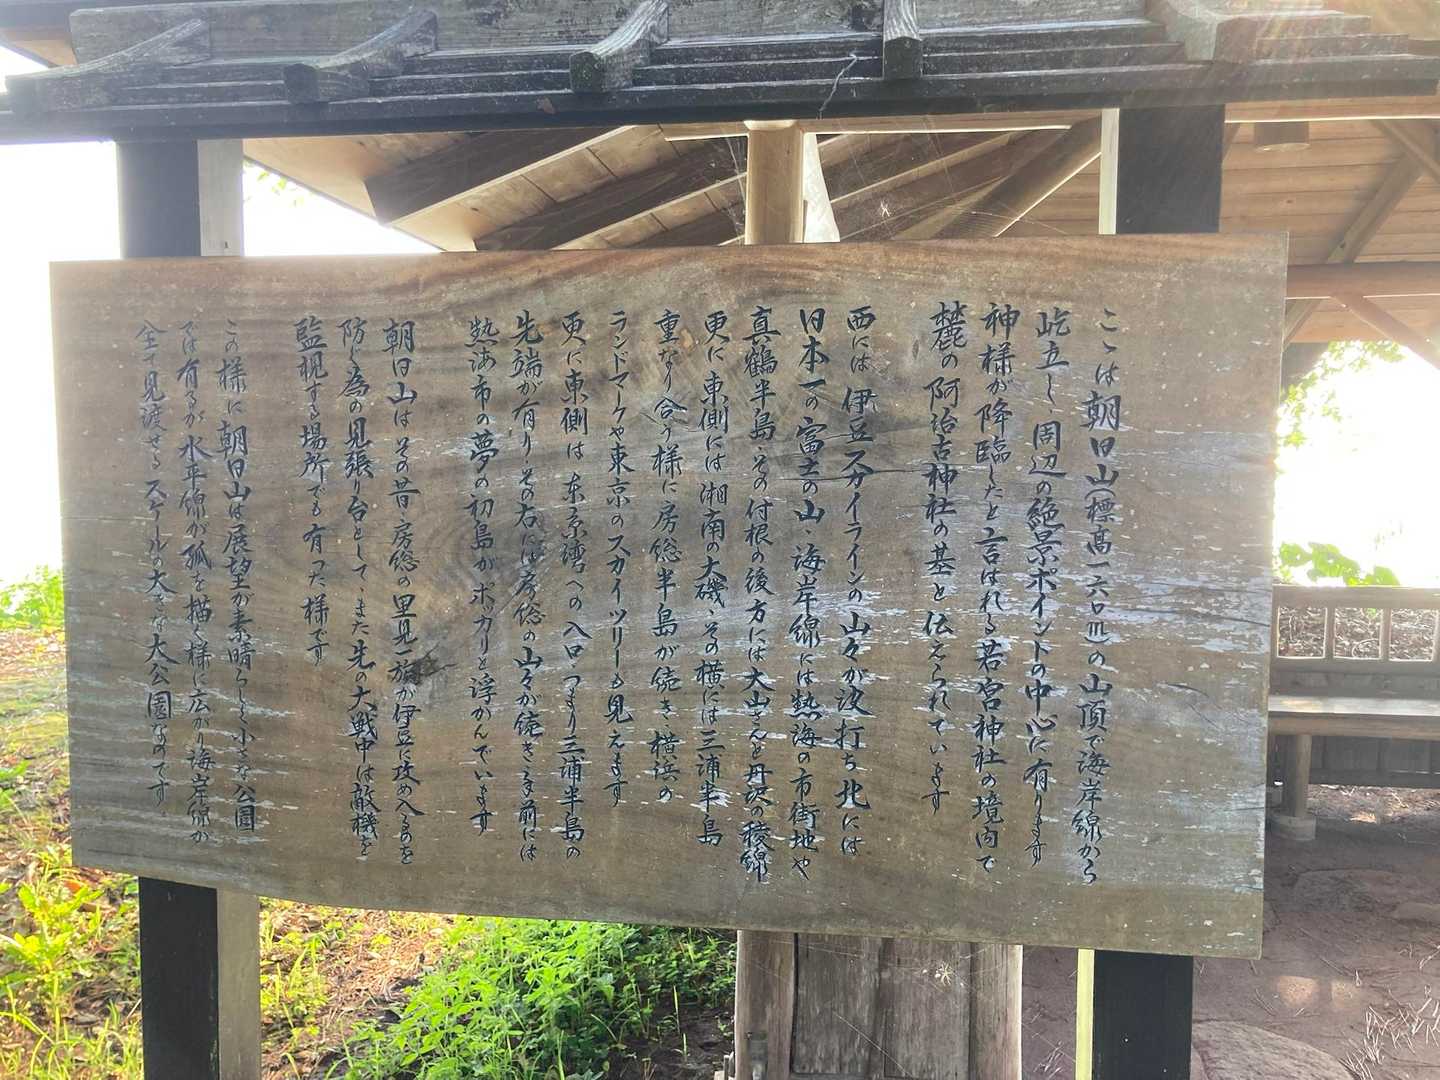 こゝは朝日山(標高一六〇m)の山頂で海岸線から
屹立し周辺の絶景ポイントの中心に有ります
神様が降臨したと言はれる若宮神社の境内で
麓の阿治古神社の基と伝えられています
西には伊豆スカイラインの山々が波打ち北には
日本一の富士の山、海岸線には熱海の市街地や
真鶴半島、その付根の後方には大山さんと丹沢の稜線
更に東側には湘南の大磯、その横には三浦半島
重なり合う様に房総半島が続き横浜の
ランドマークや東京のスカイツリーも見えます
更に東側は東京湾への入口、つまり三浦半島の
先端が有りその右には房総の山々が続き、手前には
熱海市の夢の初島がポッカリと浮かんでいます
朝日山はその昔、房総の里見一族が伊豆に攻め入るのを
防ぐ為の見張り台として、また先の大戦中は敵機を
監視する場所でも有った様です
この様に朝日山は展望が素晴らしく小さな公園
では有るが水平線が弧を描く様に広がり海岸線が
全て見渡せるスケールの大きな大公園なのです